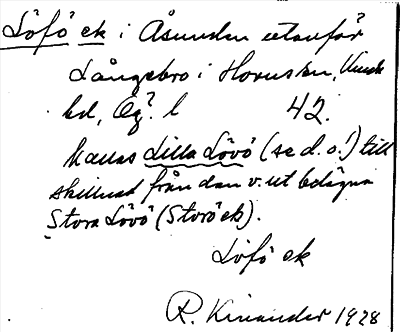 Löfö ek i Åsunden utanför
Långebro i Horns sn, Kinda
hd, Ög. l 42.
kallas Lilla Lövö (se d.o.!) till
skillnad från den v. ut belägna
Stora Lövö (Storö ek).
Löfö ek
R. Kinander 1928